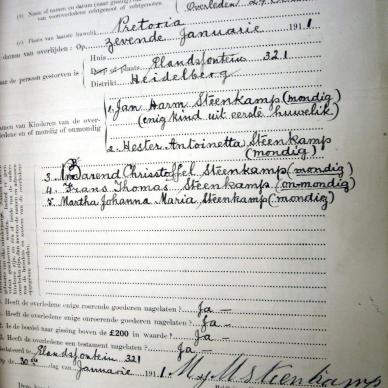 (b) Naam of namen en datum (naar gissing)
vooroverledene echtgenoot of echtgenoten
Overleden
(c) Plaats van laatste huwelik
Pretoria
datum van overlijden: Op zevende Januarie 1911
Huis
aar de persoon gestorven is Dorp of plaats. Elandsfontein 321
Distrikt Heidelberg
amen van Kinderen van de over-
ledene en of mondig of onmondig
1. Jan Harm Steenkamp (mondig)
(enig kind uit eerste huwelik)
2. Hester Antoinetta Steenkamp
(mondig)
3. Barend Chrisstoffel Steenkamp (mondig)
4. Frans Thomas Steenkamp (onmondig)
5. Martha Johanna Maria Steenkamp (mondig)
Heeft de overledene enige roerende goederen nagelaten? Ja —
Heeft de overledene enige onroerende goederen nagelaten? Ja —
Is de boedel naar gissing boven de £200 in waarde? Ja —
Heeft de overledene een testament nagelaten? Ja —
Elandsfontein 321
Op de 30ste dag van Januarie 1911
Steenkamp